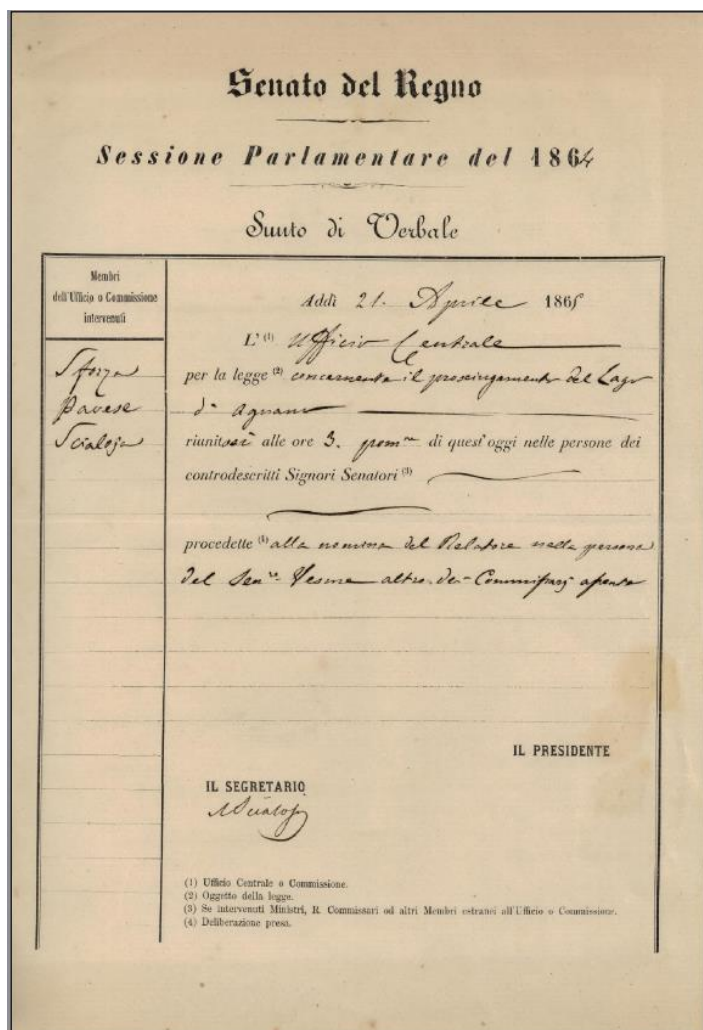 Senato del Regno
Sessione Parlamentare del 1864
Sunto di Verbale
Membri
dell'Ufficio o Commissione
intervenuti
Sforza
Pavese
Scialoja
Addì 21. Aprile 1865
L' (1) Ufficio Centrale
per la legge (2) concernente il prosciugamento del Lago
di Agnano
riunitosi alle ore 3. pom.ne di quest'oggi nelle persone dei
controdescritti Signori Senatori (3)
procedette (4) alla nomina del Relatore nella persona
del Sen.re Vesme altro dei Commissarj assente
IL PRESIDENTE
IL SEGRETARIO
AScialoja
(1) Ufficio Centrale o Commissione.
(2) Oggetto della legge.
(3) Se intervenuti Ministri, R. Commissari od altri Membri estranei all'Ufficio o Commissione.
(4) Deliberazione presa.